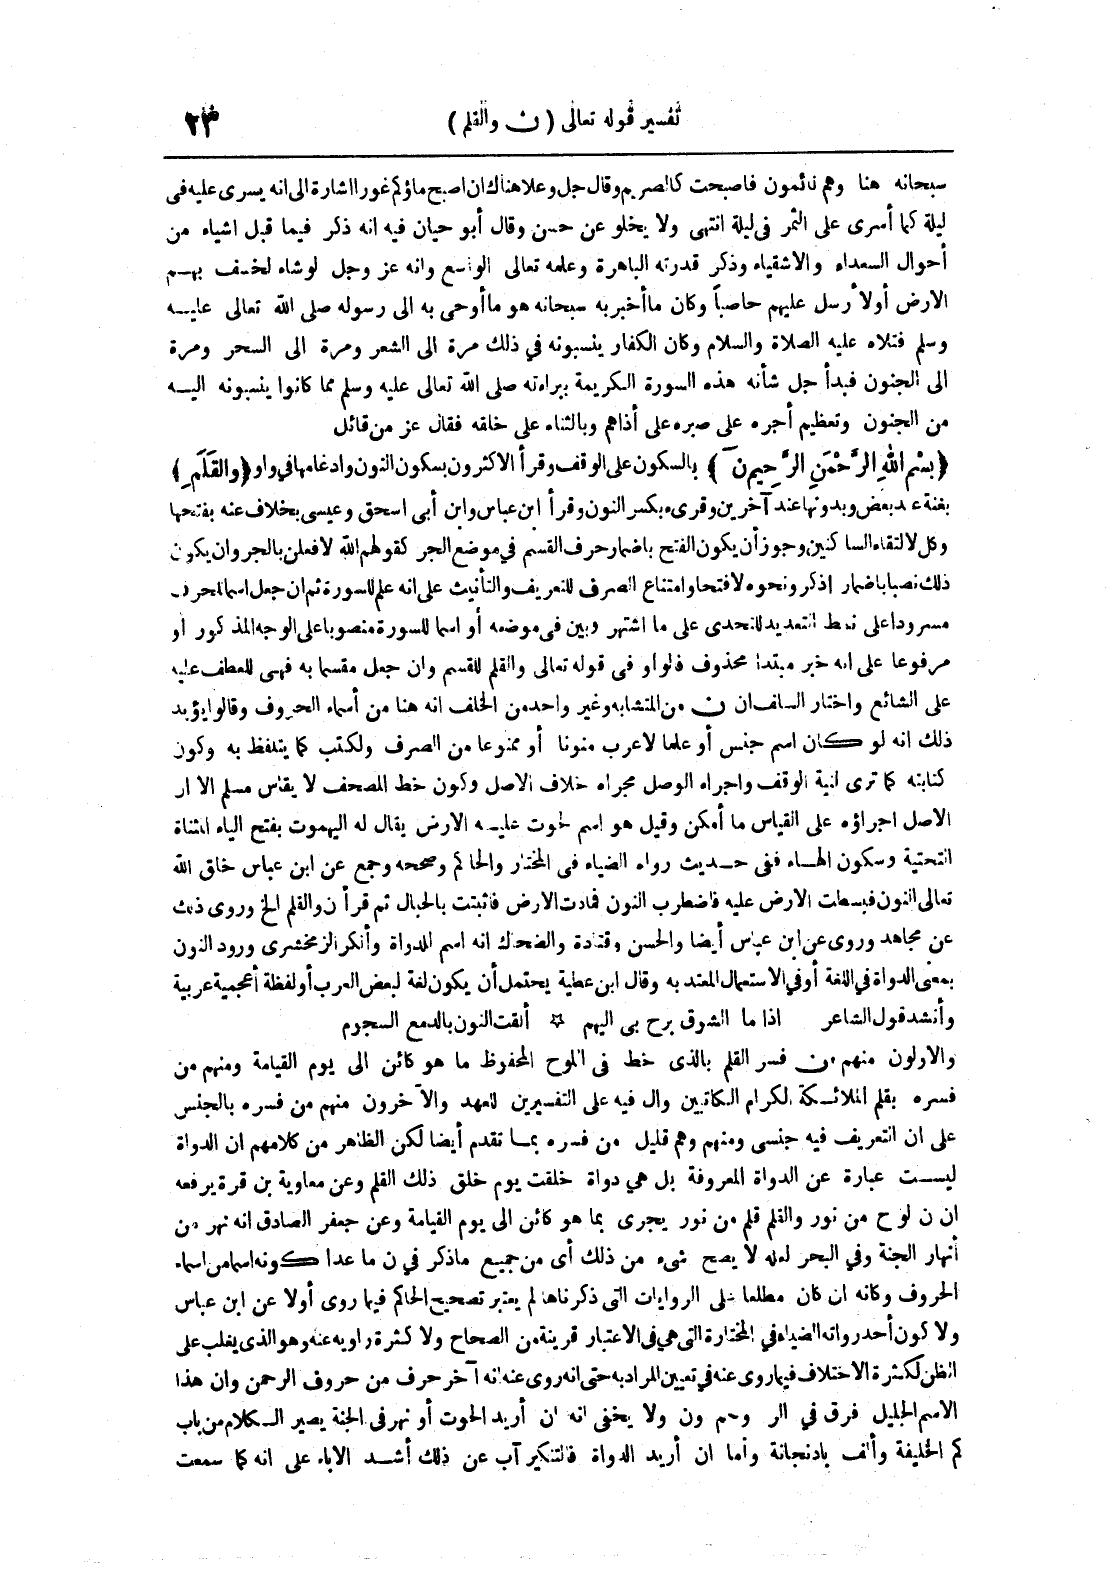 تفسير قوله تعالى ( ن والقلم )
٢٣
سبحانه هنا وهم نائمون فاصبحت كالصريم وقال جل وعلا هناك ان اصبح ماؤكم غورا اشارة الى انه يسرى عليه فى
ليلة كما أسرى على الثمر فى ليلة انتهى ولا يخلو عن حسن وقال أبو حيان فيه انه ذكر فيما قبل اشياء من
أحوال السعداء والاشقياء وذكر قدرته الباهرة وعلمه تعالى الواسع وانه عز وجل لو شاء لخسف بهم
الارض أو لأرسل عليهم حاصباً وكان ما أخبر به سبحانه هو ما أوحى به الى رسوله صلى الله تعالى عليه
وسلم فتلاه عليه الصلاة والسلام وكان الكفار ينسبونه في ذلك مرة الى الشعر ومرة الى السحر ومرة
الى الجنون فبدأ جل شأنه هذه السورة الكريمة ببراءته صلى الله تعالى عليه وسلم مما كانوا ينسبونه اليه
من الجنون وتعظيم أجره على صبره على أذاهم وبالثناء على خلقه فقال عز من قائل
﴿ بِسْمِ اللهِ الرَّحْمَنِ الرَّحِيمِ نٓ ﴾ بالسكون على الوقف وقرأ الاكثرون بسكون النون وادغامها في واو ﴿ وَالْقَلَمِ ﴾
بغنة عند بعض وبدونها عند آخرين وقرىء بكسر النون وقرأ ابن عباس وابن أبى اسحق وعيسى بخلاف عنه بفتحها
وكل لالتقاء الساكنين وجوز أن يكون الفتح باضمار حرف القسم في موضع الجر كقولهم الله لافعلن بالجر وان يكون
ذلك نصبا باضمار اذكر ونحوه لا فتحا وامتناع الصرف للتعريف والتأنيث على انه علم للسورة ثم ان جعل اسما للحرف
مسرودا على نمط التعديد للتحدى على ما اشتهر وبين فى موضعه أو اسما للسورة منصوبا على الوجه المذكور أو
مرفوعا على انه خبر مبتدا محذوف فالواو فى قوله تعالى والقلم للقسم وان جعل مقسما به فهى للعطف عليه
على الشائع واختار السلف ان ن من المتشابه وغير واحد من الخلف انه هنا من أسماء الحروف وقالوا يؤيد
ذلك انه لو كان اسم جنس أو علما لاعرب منونا أو ممنوعا من الصرف ولكتب كما يتلفظ به وكون
كتابته كما ترى لنية الوقف واجراء الوصل مجراه خلاف الاصل وكون خط المصحف لا يقاس مسلم الا ان
الاصل اجراؤه على القياس ما أمكن وقيل هو اسم لحوت عليه الارض يقال له اليهموت بفتح الياء المثناة
التحتية وسكون الهاء ففى حديث رواه الضياء فى المختارة والحاكم وصححه وجمع عن ابن عباس خلق الله
تعالى النون فبسطت الارض عليه فاضطرب النون فمادت الارض فاثبتت بالجبال ثم قرأ ن والقلم الخ وروى ذلك
عن مجاهد وروى عن ابن عباس أيضا والحسن وقتادة والضحاك انه اسم للدواة وأنكر الزمخشرى ورود النون
بمعنى الدواة في اللغة أو في الاستعمال المعتد به وقال ابن عطية يحتمل أن يكون لغة لبعض العرب أو لفظة أعجمية عربية
وأنشد قول الشاعر اذا ما الشوق برح بى اليهم ☆ ألقت النون بالدمع السجوم
والاولون منهم من فسر القلم بالذى خط فى اللوح المحفوظ ما هو كائن الى يوم القيامة ومنهم من
فسره بقلم الملائكة الكرام الكاتبين وال فيه على التفسيرين للعهد والآخرون منهم من فسره بالجنس
على ان التعريف فيه جنسى ومنهم وهم قليل من فسره بما تقدم أيضا لكن الظاهر من كلامهم ان الدواة
ليست عبارة عن الدواة المعروفة بل هي دواة خلقت يوم خلق ذلك القلم وعن معاوية بن قرة يرفعه
ان ن لوح من نور والقلم قلم من نور يجرى بما هو كائن الى يوم القيامة وعن جعفر الصادق انه نهر من
أنهار الجنة وفي البحر لعله لا يصح شىء من ذلك أى من جميع ماذكر في ن ما عدا كونه اسما من اسماء
الحروف وكانه ان كان مطلعا على الروايات التى ذكرناها لم يعتبر تصحيح الحاكم فيما روى أولا عن ابن عباس
ولا كون أحد رواته الضياء في المختارة التى هى فى الاعتبار قريبة من الصحاح ولا كثرة راويه عنه وهو الذى يغلب على
الظن لكثرة الاختلاف فيما روى عنه في تعيين المراد به حتى انه روى عنه انه آخر حرف من حروف الرحمن وان هذا
الاسم الجليل فرق في الر وحم ون ولا يخفى انه ان أريد الحوت أو نهر فى الجنة يصير الكلام من باب
كم الخليفة وألف بادنجانة وأما ان أريد الدواة فالتنكير آب عن ذلك أشد الاباء على انه كما سمعت